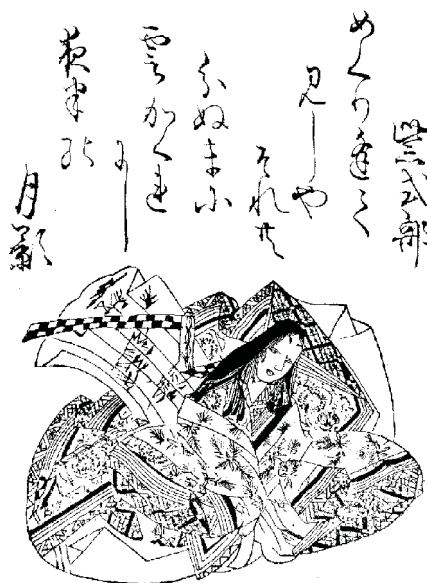 紫式部
めくり逢て
見しや
それ共
分ぬまに
雲かくれ
にし
夜半の
月影